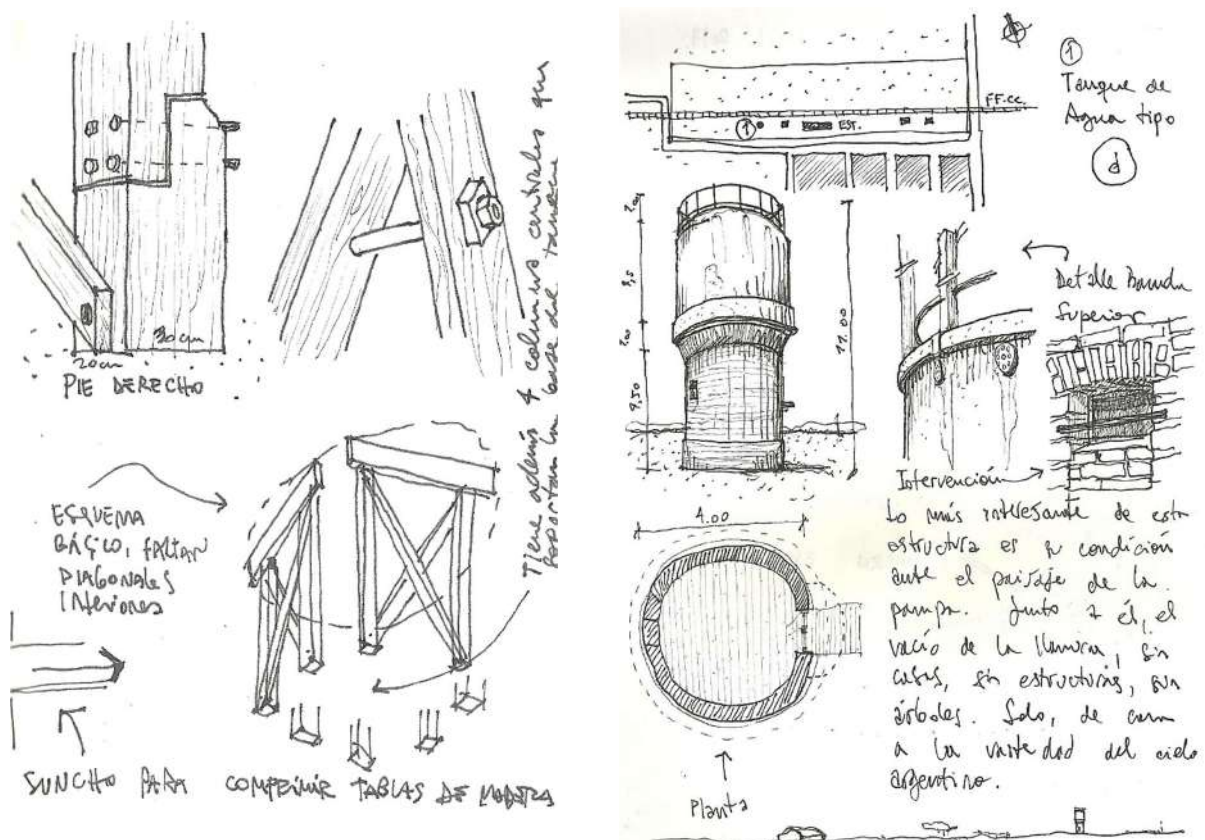 30 cm
20 cm
PIE DERECHO
Tiene además 4 columnas centrales que
soportan la base del tanque
ESQUEMA
BÁSICO, FALTAN
DIAGONALES
INTERIORES
SUNCHO PARA COMPRIMIR TABLAS DE MADERA
1
Tanque de
Agua tipo
d
FF.CC.
1
EST.
Detalle Baranda
Superior
Intervención
4.00
Planta
Lo más interesante de esta
estructura es su condición
ante el paisaje de la
pampa. Junto a él, el
vacío de la llanura, sin
casas, sin estructuras, sin
árboles. Solo, de cara
a la vastedad del cielo
argentino.